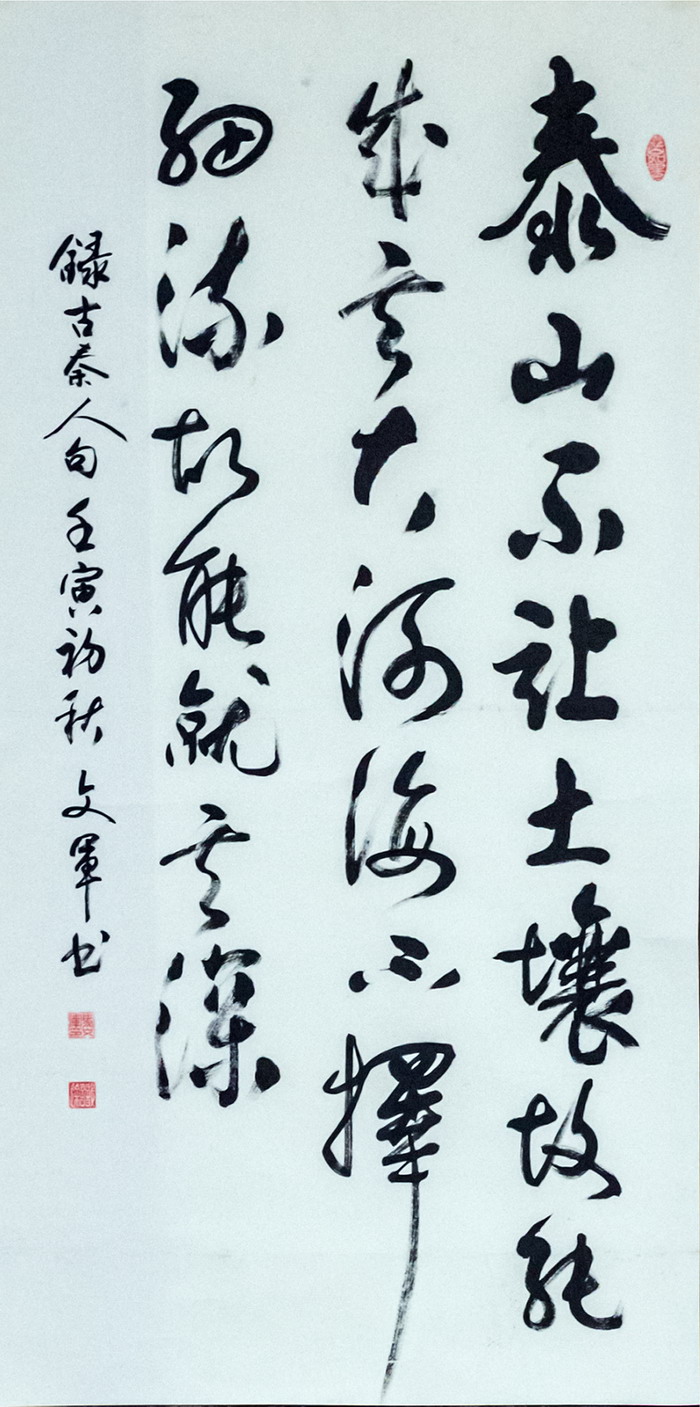 泰山不让土壤故能
成其大河海不择
细流故能就其深
録古秦人句壬寅初秋 文軍书